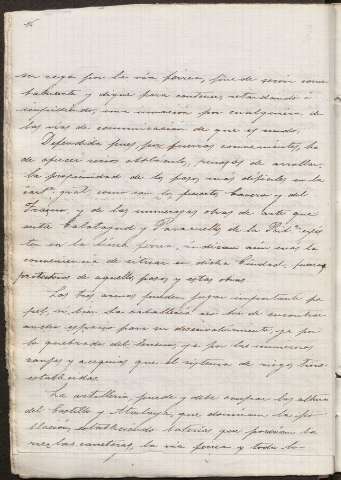 se riega por la vía férrea, puede servir como
baluarte y dique para contener, retardando ó
impidiendo, una invasión por cualquiera de
las vías de comunicación de que es nudo.
Defendida pues, por fuerzas convenientes, ha
de ofrecer serios obstáculos, penosos de arrollar,
la proximidad de los pasos más difíciles en la
carr.ª gral. como son los puertos Cavero y del
Frasno, y de las numerosas obras de arte que
entre Calatayud y Paracuellos de la Rib.ª exis
te en la línea férrea, indican aún más la
conveniencia de situar en dicha Ciudad, fuerzas
protectoras de aquellos pasos y estas obras.
Las tres armas pueden jugar importante pa
pel, si bien la caballería no ha de encontrar
ancho espacio para su desenvolvimiento, ya por
lo quebrado del terreno, ya por las numerosas
zanjas y acequias que el sistema de riegos tiene
establecidas.
La artillería, puede y debe ocupar las alturas
del Castillo y Atalaya, que dominan la po
blación, estableciendo baterías que
las carreteras, la vía férrea y toda la